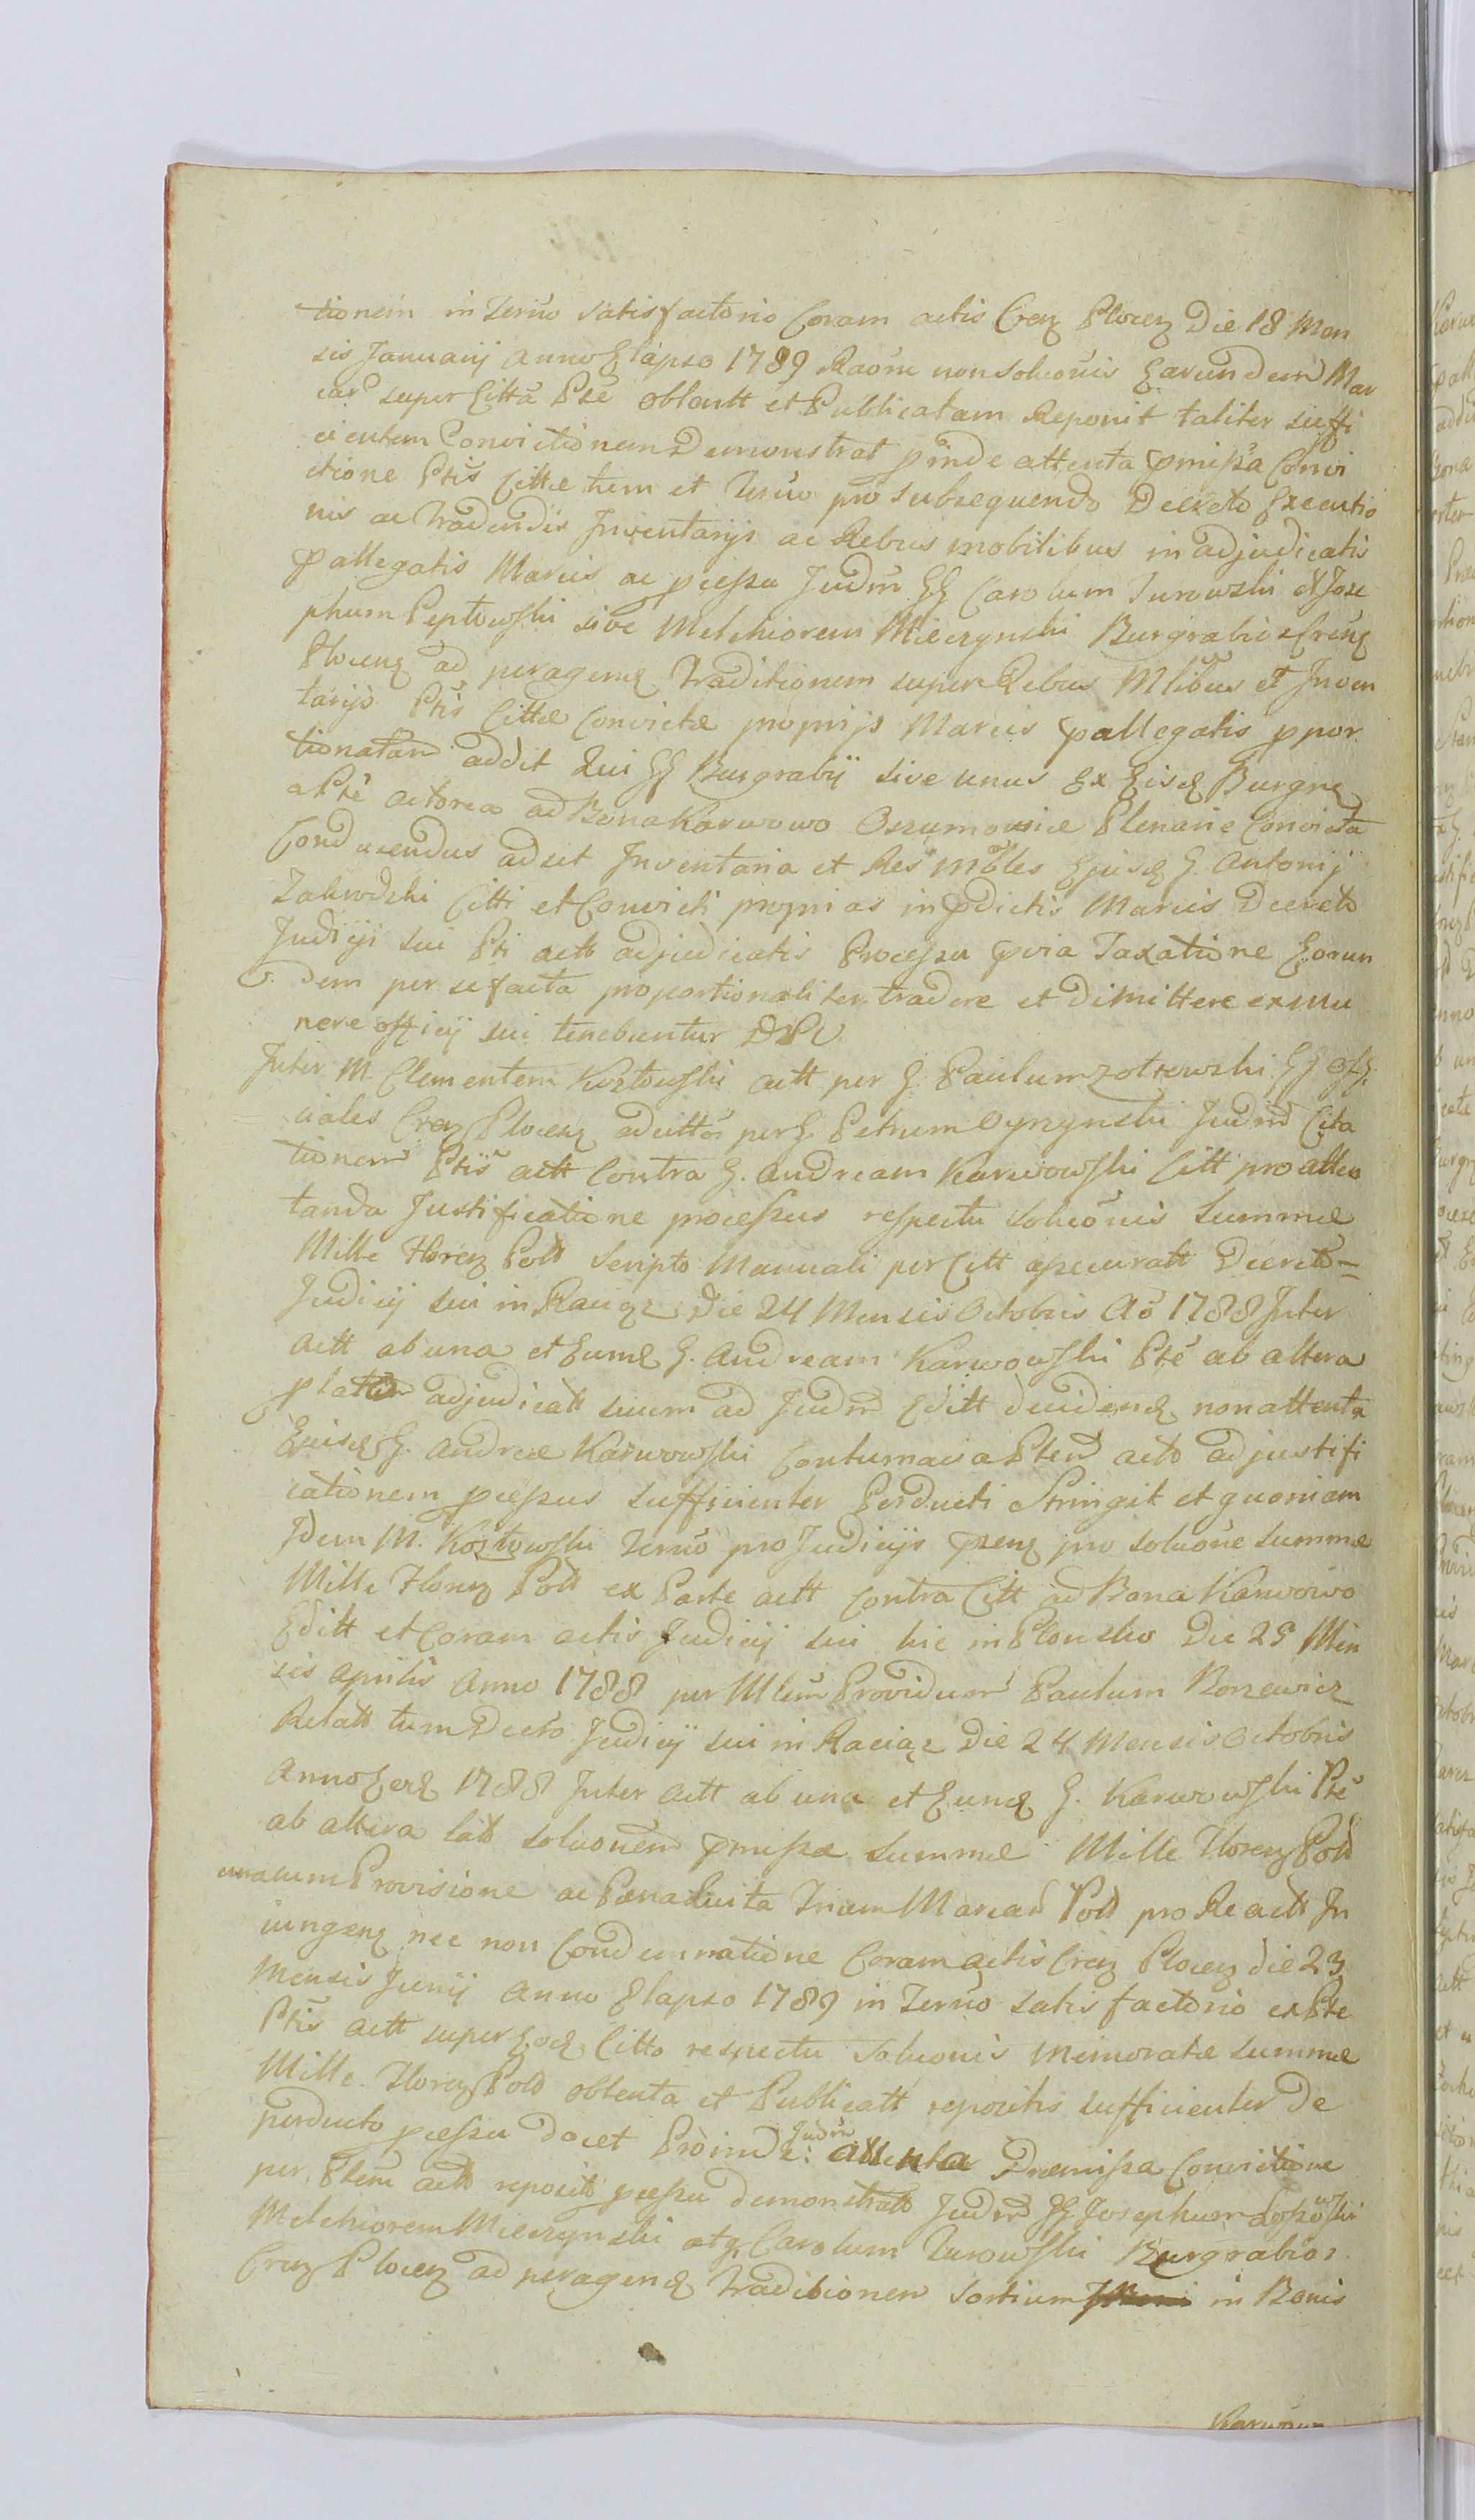 tionem in Termo satisfactorio Coram actis Cren Plocen Die 18 Men
sis Januarij anno Elapso 1789 Raone non Soluonis Earundem Mar
car super Citta Pte obtentt et Publicatam Reponit taliter suffi
cientem Convictionem Demonstrat pinde attenta pmissa Convi
ctione Ptis Cittae tum et Termo pro subsequendo Decreto Executio
nis ac tradendis Inventarijs ac Rebus mobilibus in adjudicatis
pallegatis Marcis ac pcessu Judm GG Carolum Turowski et Jose
phum Peptowski sive Melchiorem Mieczynski Burgrabios Crens
Plocens ad peragend Traditionem super Rebus Mlibus et Inven
tarijs Ptis Cittae Convictae proprijs Marcis pallegatis ppor
tionatam addit Qui GG Burgrabij sive unus Ex Eisd Burgns
a Pte actorea ad Bona Karwowo Plenarie Convicta
Conducendus adsit Inventaria et Res mobles Ejusd G. Antonij
Citti et Convicti proprias in pdictis Marcis Decreto
Judicij sui Pti actt adjudicatis Processu pvia Taxatione Eorun
dem per se facta proportionaliter tradere et dimittere ex mu
nere officij sui tenebuntur DPU
Inter M. Clementem Kozłowski actt per G. Paulum Zołtowski GG Offi
ciales Cren Plocen ad citto per G. Petrum Judm Cita
tionem Ptis actt Contra G. Andream Karwowski Citt pro atten
tanda Justificatione processus respectu soluonis Summae
Mille Floren Poll Scripto Manuali per Citt assecuratt Decreto
Judicij sui in Raciąz Die 24 Mensis Octobris Ao 1788 Inter
actt ab una et Eumd G. Andream Karwowski Pte ab altera
platum adjudicatt suum ad Judm Editt decidend non attenta
Ejusd G. Andreae Karwowski Contumacia Ptem acto ad justifi
cationem pcessus sufficienter Perducti Stringit et quoniam
Idem M. Kozłowski Termo pro Judicijs pzen pro soluone Summae
Mille Floren Poll ex Parte actt Contra Citt ad Bona Karwowo
Editt et Coram actis Judicij sui hic in Plonsko Die 25 Men
sis Aprilis Anno 1788 per Mlem Providum Paulum
Relatt tum Decreto Judicij sui in Raciąz Die 24 Mensis Octobris
Anno Eod 1788 Inter actt ab una et Eund G. Karwowski Pte
ab altera latt soluonem pmissae Summae Mille Floren Poll
unacum Provisione ac Paena Luita Trium Marcar Poll pro Re actt In
iungen nec non Condemnatione Coram actis Cren Plocen die 23
Mensis Junij Anno Elapso 1789 in Termo satisfactorio ex Pte
Ptis actt super Eod Citto respectu soluonis memoratae Summae
Mille Floren Poll obtenta et Publicatt repositis sufficienter De
perducto pcessu docet Proinde Judm attenta Praemissa Convictione
per Ptem actt reposito pcessu demonstratt Judm GG Josephum
Melchiorem Mieczynski atq Carolum Turowski Burgrabios
Cren Plocen ad peragend traditionem Sortium in Bonis